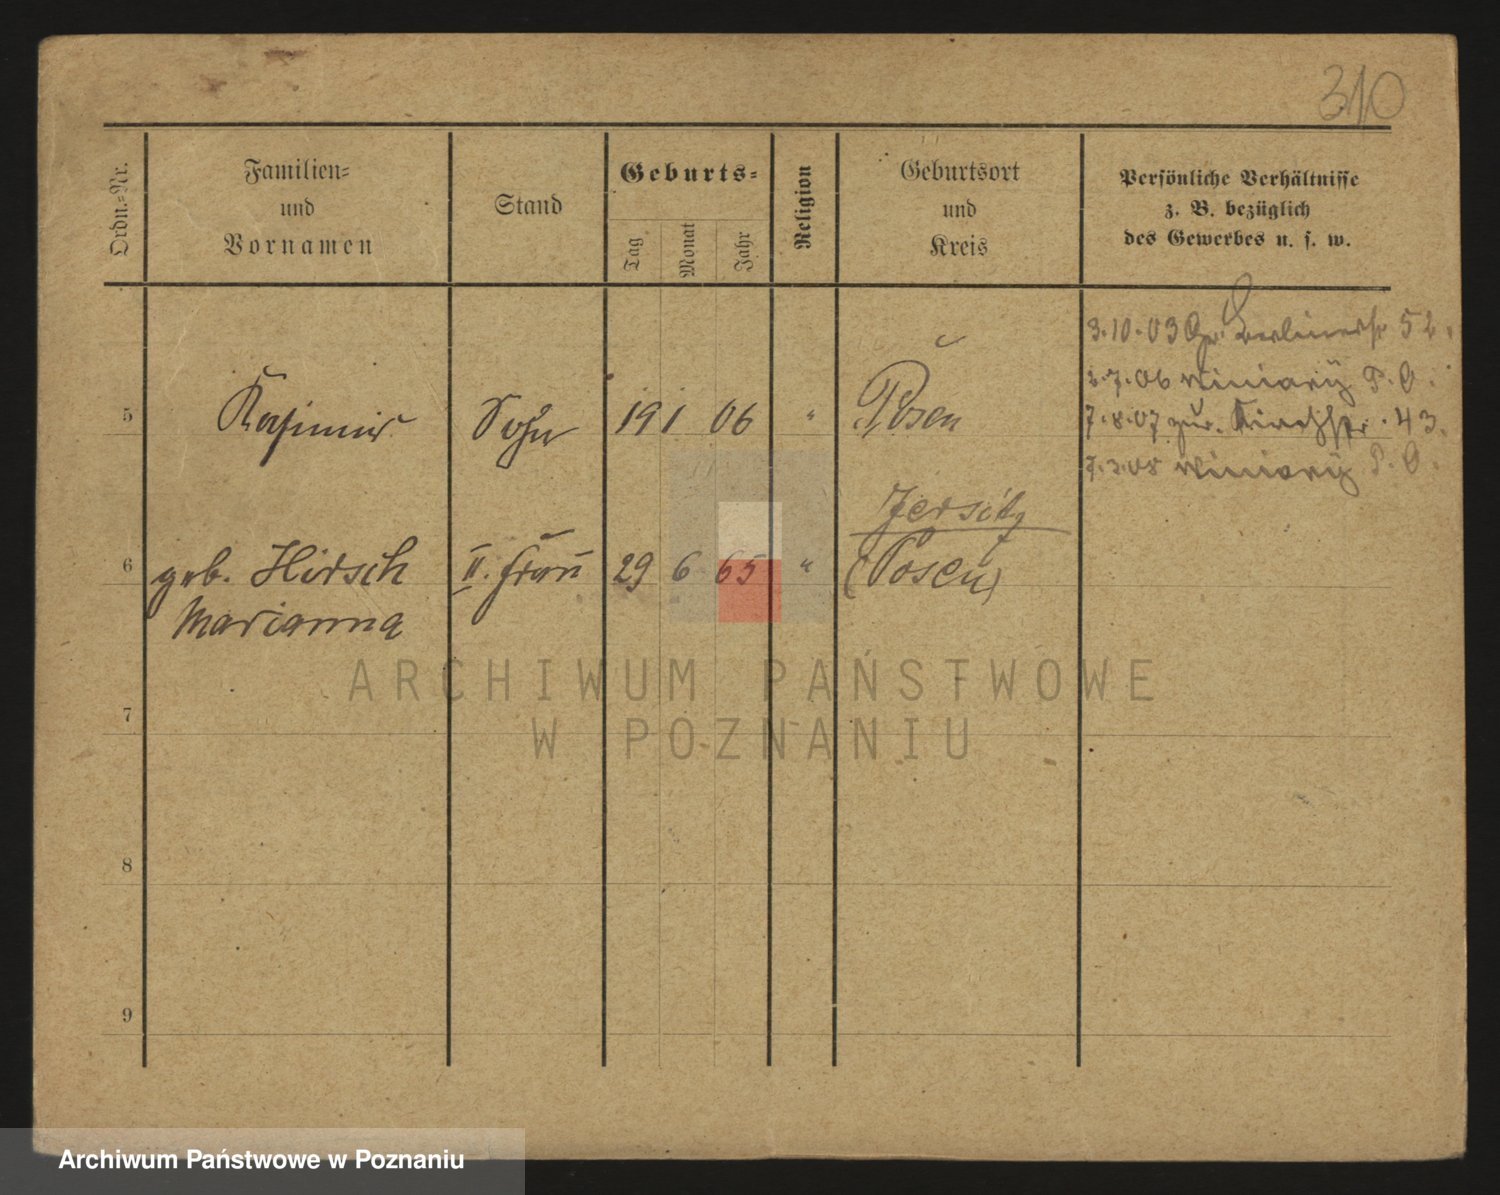 310
Ordn.=Nr.
Familien=
und
Vornamen
Stand
Geburts=
Tag
Monat
Jahr
Religion
Geburtsort
und
Kreis
Persönliche Verhältnisse
z. B. bezüglich
des Gewerbes u. s. w.
3.10.03 Gr. Berlinerstr 52.
2.7.06 Winiary P. O.
7.8.07 zur. Kirchstr. 43.
7.3.08 Winiary P. O.
5 Kasimir Sohn 19 1 06 " Posen
Jersitz
6 geb. Hirsch II. Frau 29 6 65 " (Posen)
Marianna
7
8
9
ARCHIWUM PAŃSTWOWE
W POZNANIU
Archiwum Państwowe w Poznaniu